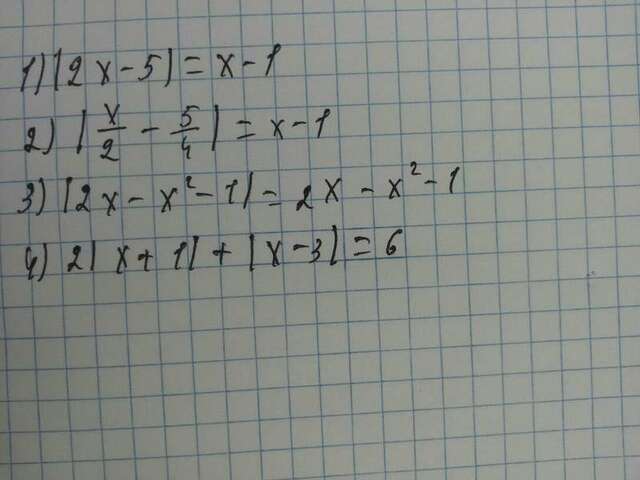 1) |2x-5| = x-1
2) |x/2 - 5/4| = x-1
3) |2x - x² - 1| = 2x - x² - 1
4) 2|x+1| + |x-3| = 6